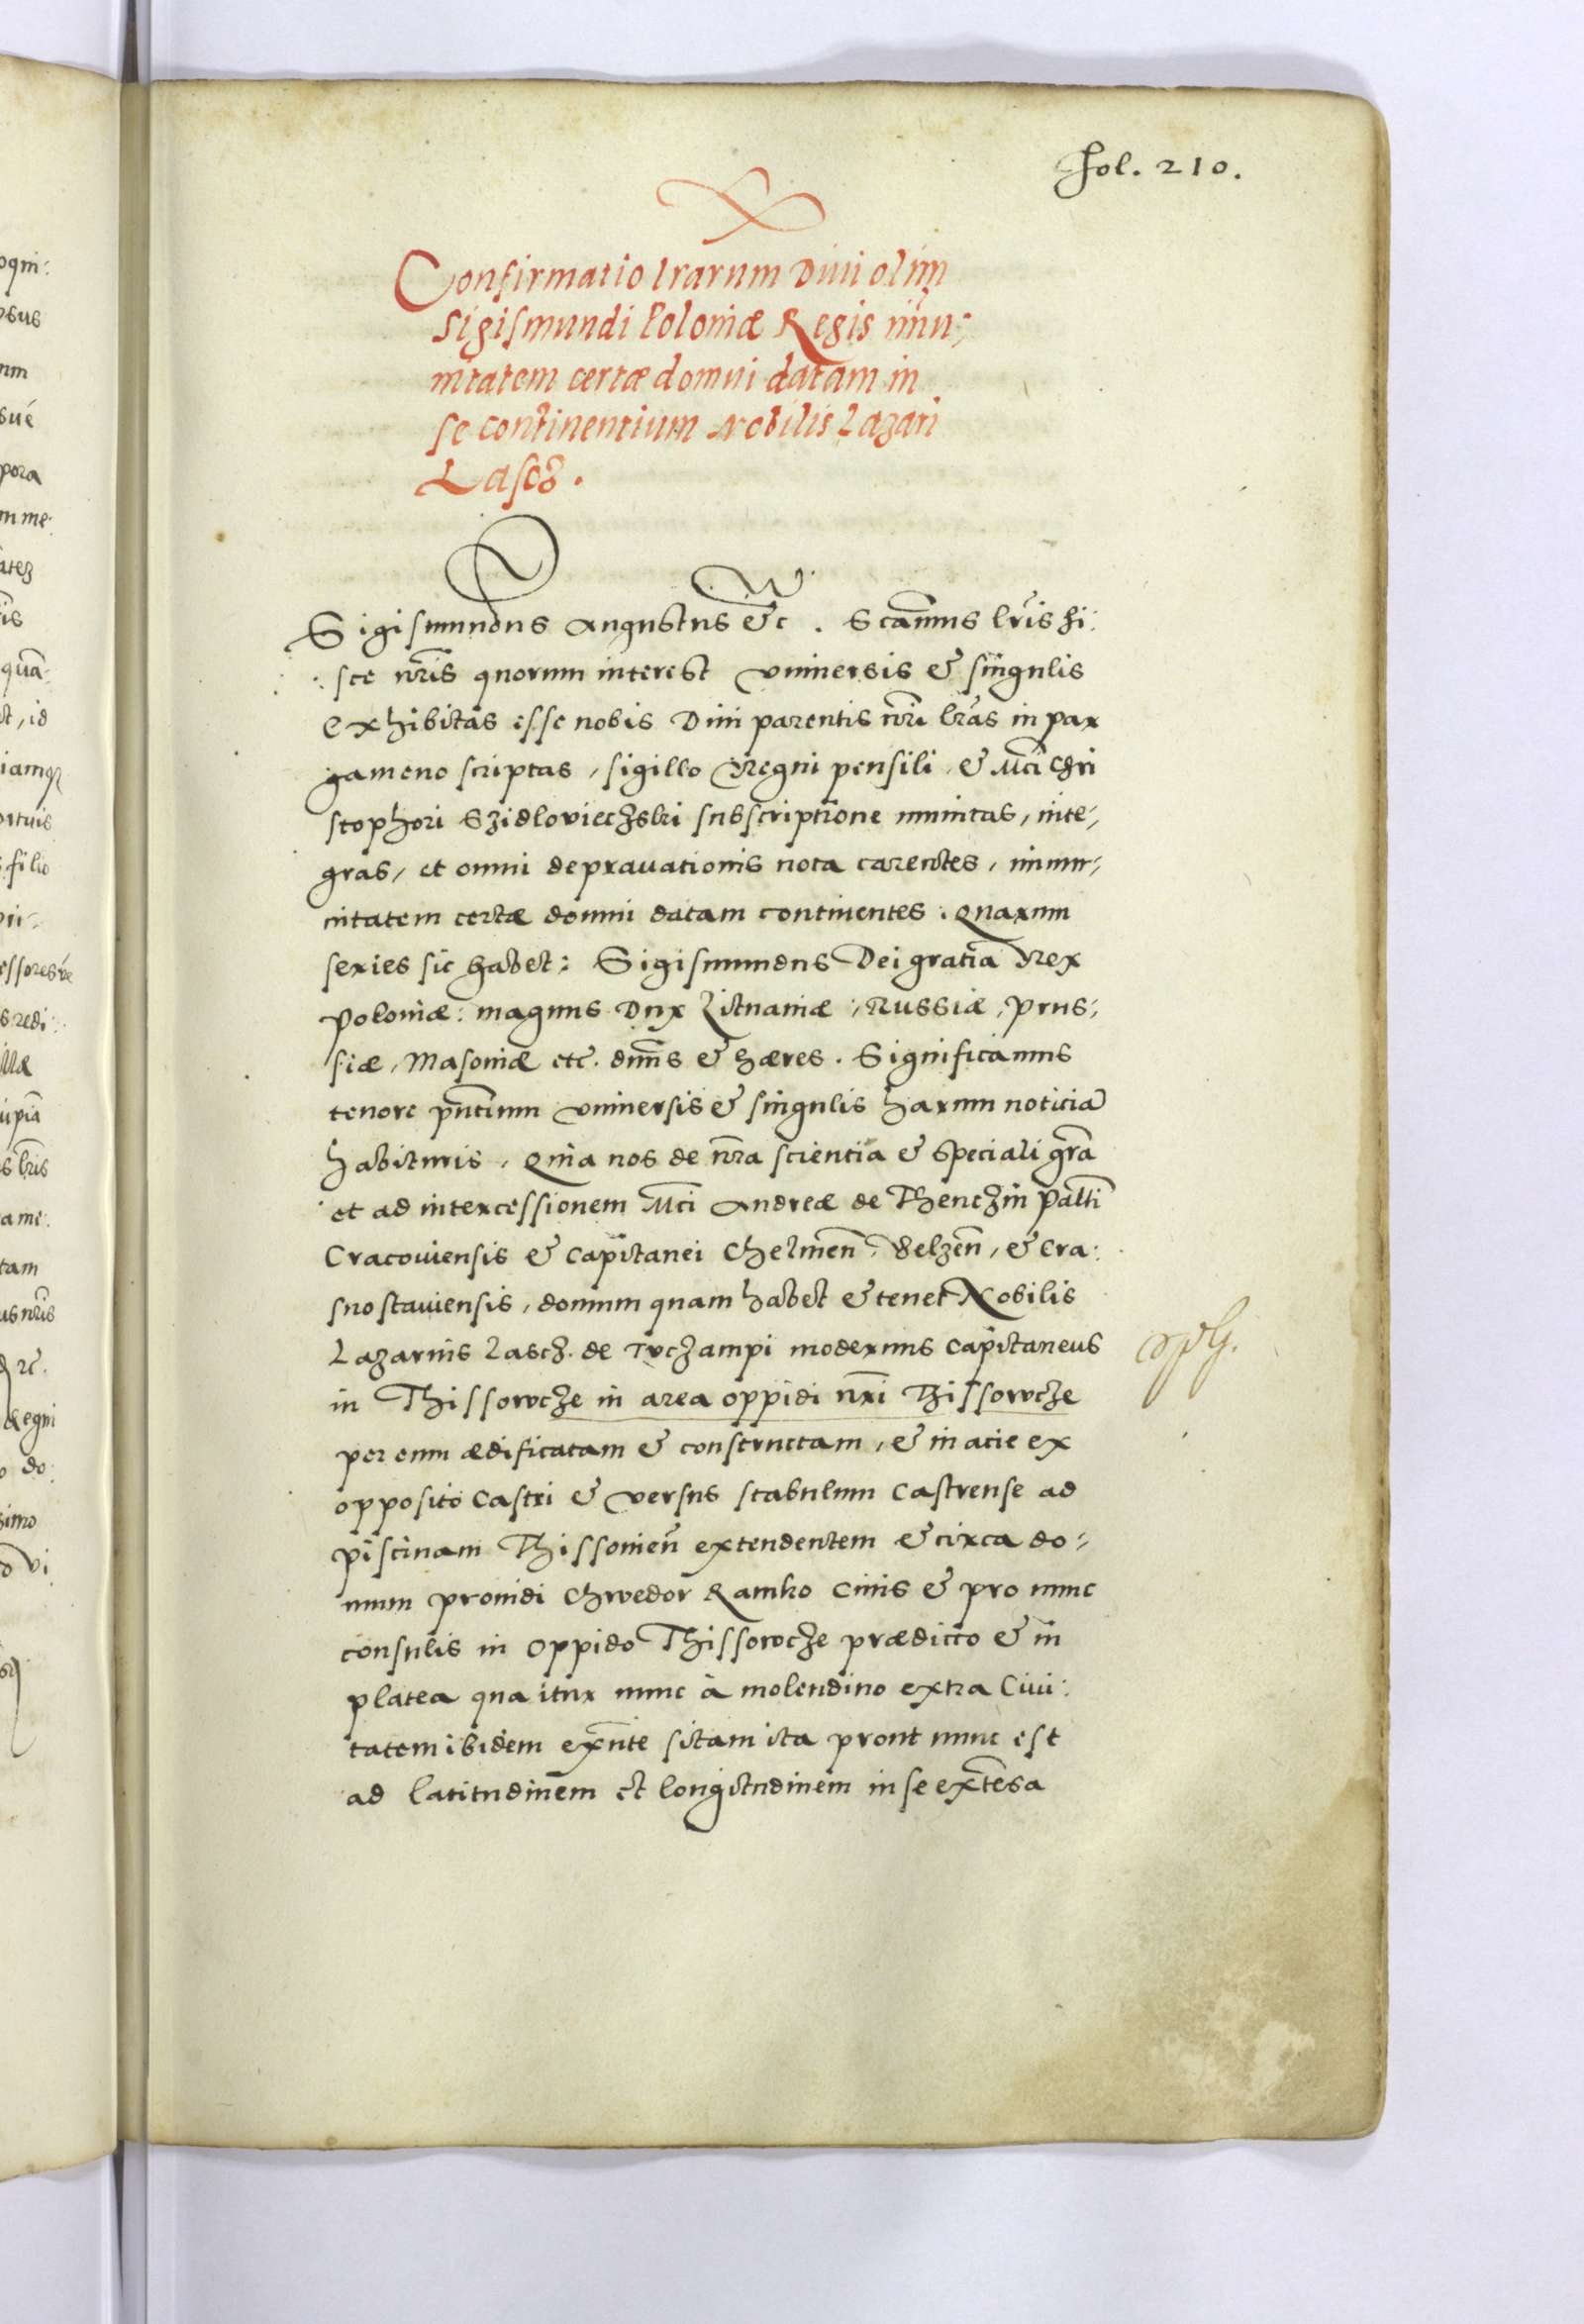 Fol. 210.
Confirmatio lrarum Diui olim
Sigismundi Poloniæ Regis im̃u:
nitatem certæ domui datam in
se continentium Nobilis Lazari
Lascz.
Sigismundus Augustus &c. Scam̃us lr̃is hi:
sce nr̃is quorum interest vniuersis & singulis
exhibitas esse nobis Diui parentis nr̃i lr̃as in par
gameno scriptas, sigillo Regni pensili, & Mci Chri
stophori Szidloviechski subscriptione munitas, inte,
gras, et omni deprauationis nota carentes, immu,
nitatem certæ domui datam continentes. Quarum
series sic habet: Sigismundus Dei gratia Rex
Poloniæ: magnus Dux Lituaniæ, Russiæ, Prus,
siæ, Masoniæ etc. dnus & hæres. Significamus
tenore pñtium vniuersis & singulis harum noticia
habituris, Quia nos de nr̃a scientia & speciali gr̃a
et ad intercessionem Mci Andreæ de Thenczin Palti
Cracouiensis & Capitanei Chelmeñ, Belzeñ, & Cra:
snostauiensis, domum quam habet & tenet Nobilis
Lazarus Lascz. de Tuczampi modernus Capitaneus
in Thissowcze in area oppidi nr̃i Thissowcze
per eum ædificatam & constructam, & in acie ex
opposito Castri & versus stabulum Castrense ad
piscinam Thissouieñ extendentem & circa do,
mum prouidi Chwedor Ramko Ciuis & pro nunc
consulis in Oppido Thissowcze prædicto & in
platea qua itur nunc à molendino extra Ciui:
tatem ibidem exñte sitam ita prout nunc est
ad latitudinem et longitudinem in se extesa